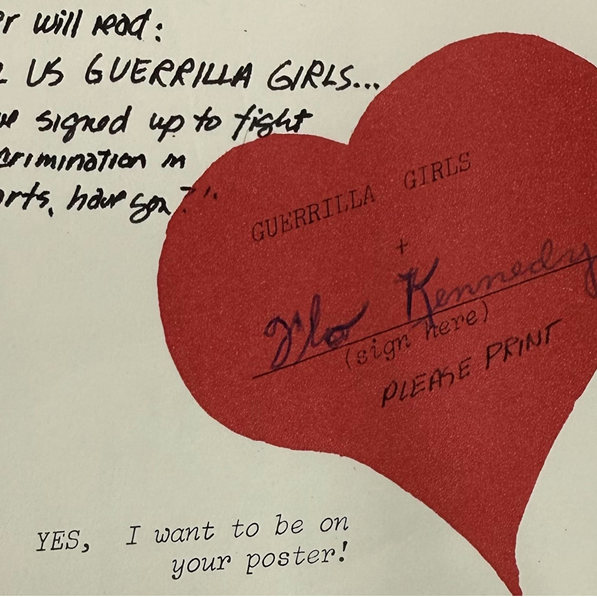 r will read:
L US GUERRILLA GIRLS...
ve signed up to fight
crimination in
arts, have you?"
GUERRILLA GIRLS
+
Flo Kennedy
(sign here)
PLEASE PRINT
YES, I want to be on
your poster!